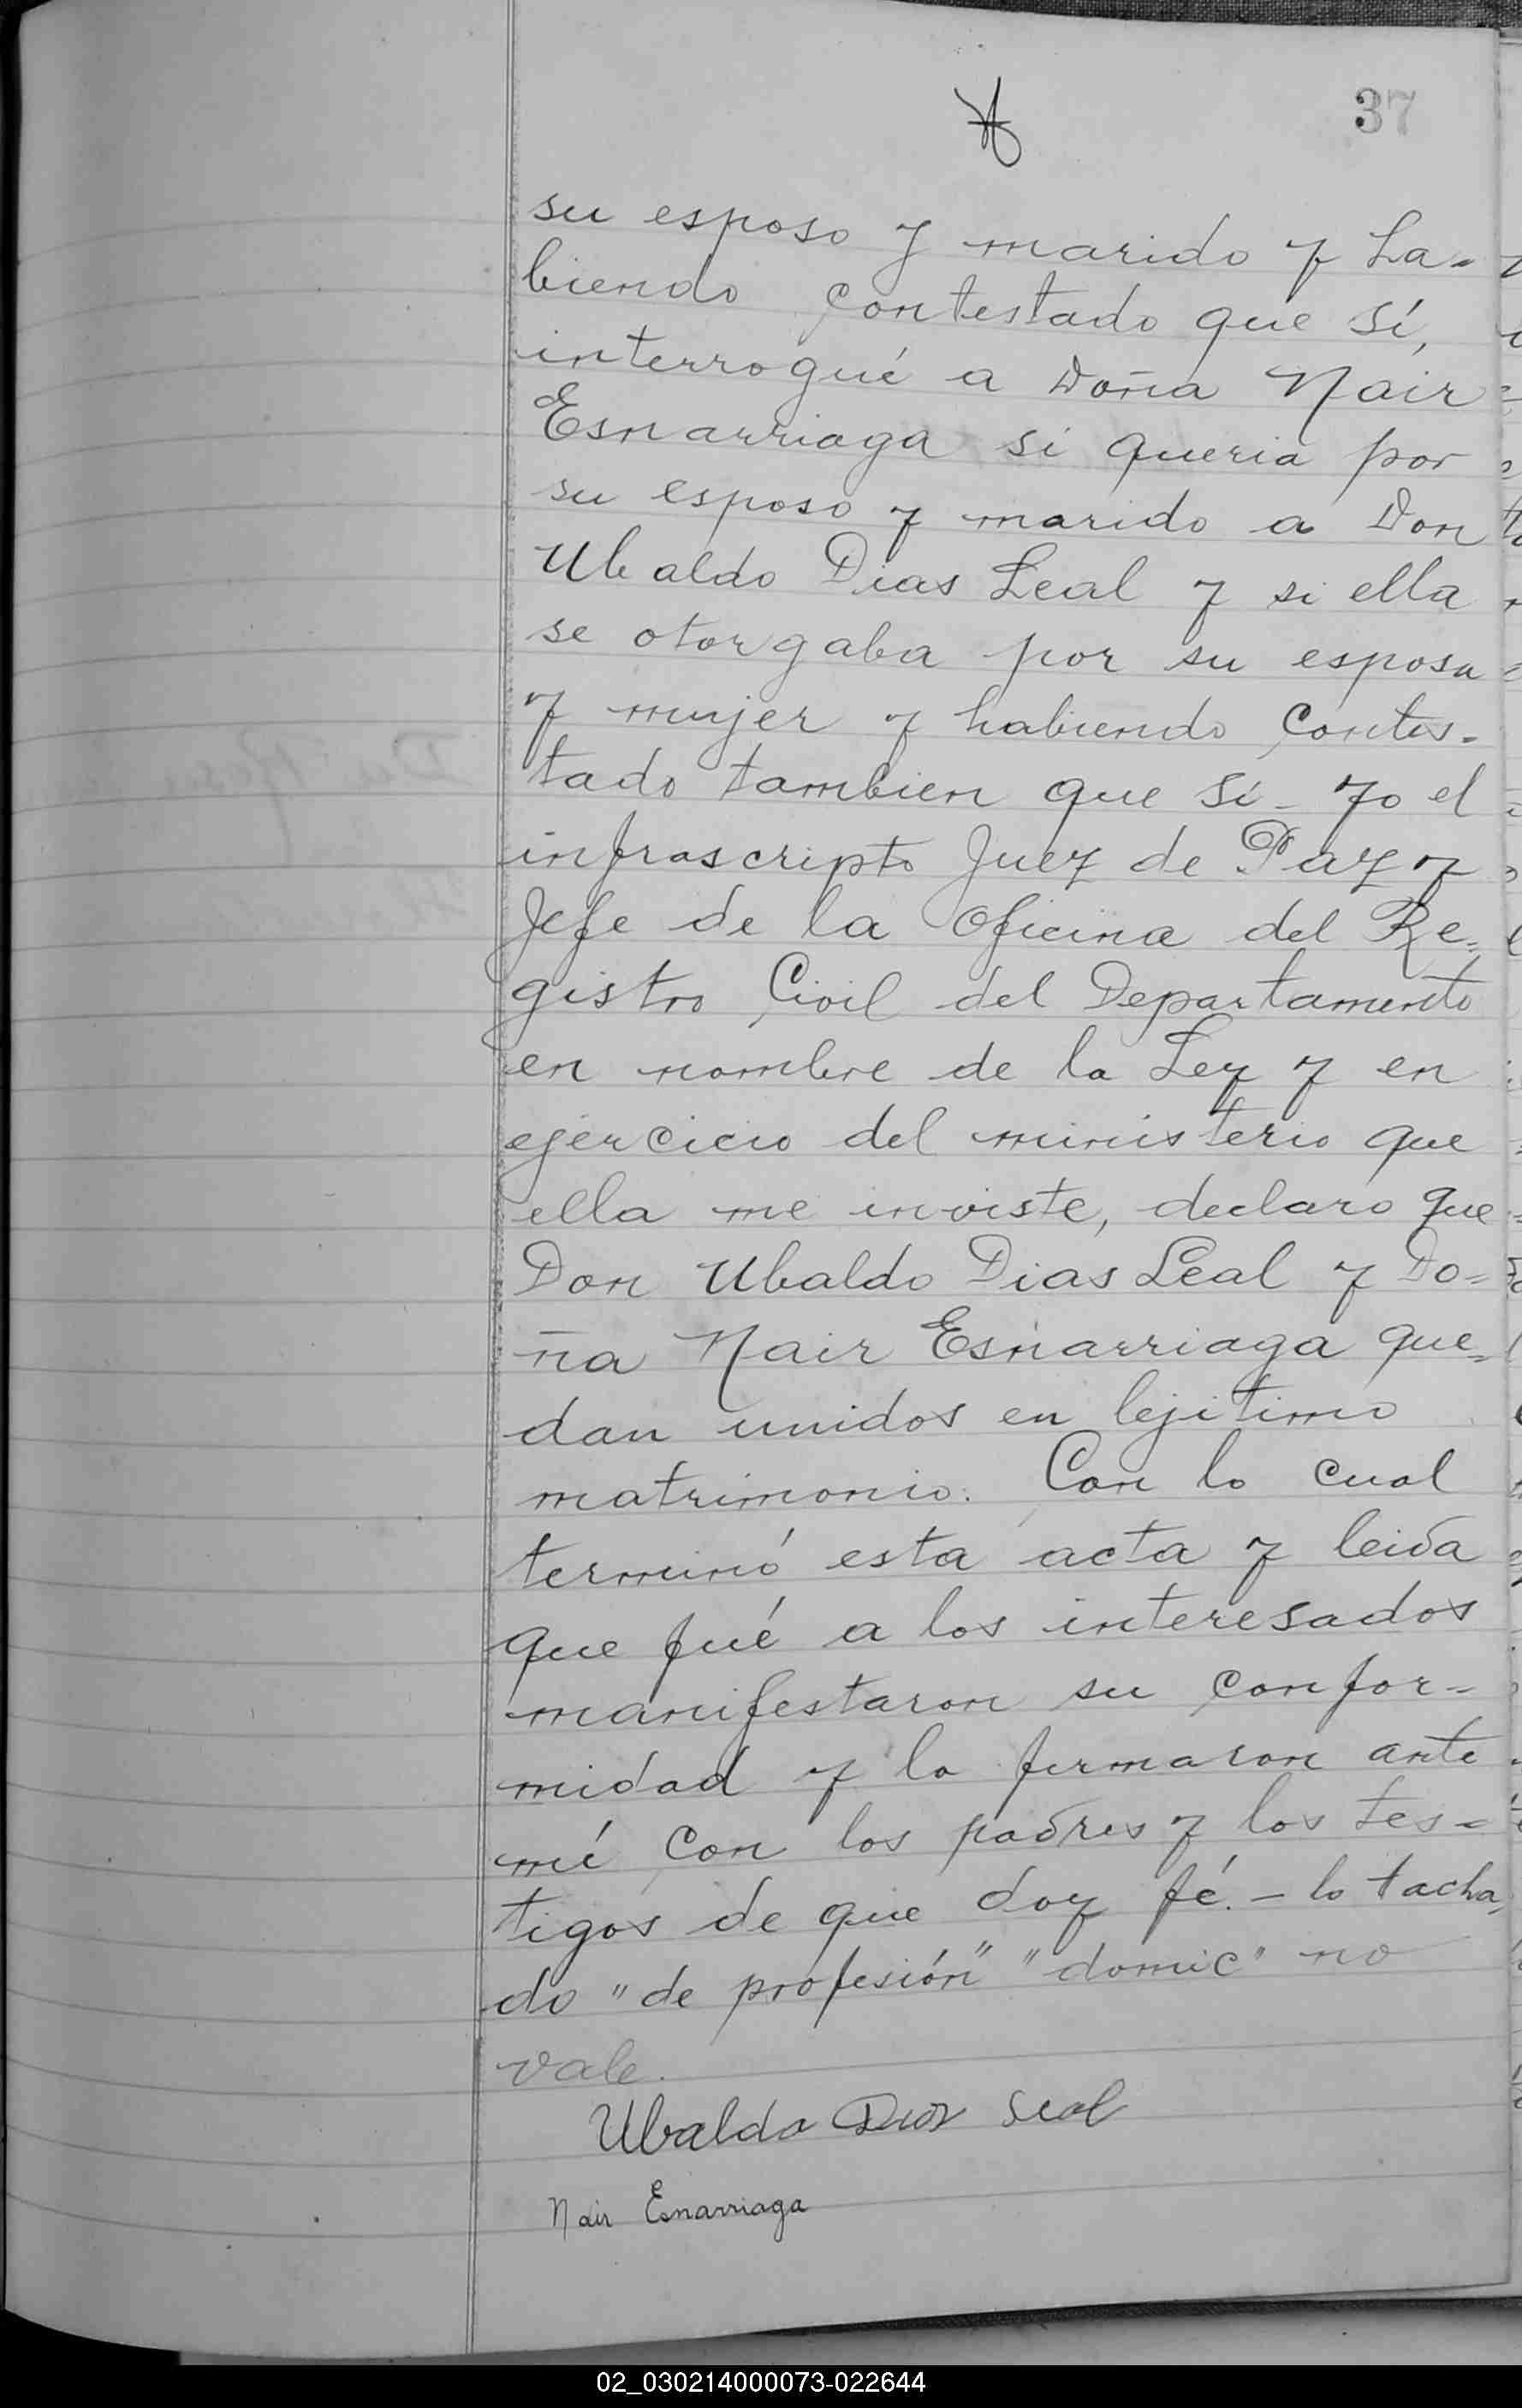 37
su esposo y marido y ha-
biendo contestado que sí,
interrogué a Doña Nair
Esnarriaga si queria por
su esposo y marido a Don
Ubaldo Dias Leal y si ella
se otorgaba por su esposa
y mujer y habiendo contes-
tado tambien que sí - yo el
infrascripto Juez de Paz y
Jefe de la Oficina del Re=
gistro Civil del Departamento
en nombre de la Ley y en
ejercicio del ministerio que
ella me inviste, declaro que
Don Ubaldo Dias Leal y Do=
ña Nair Esnarriaga que=
dan unidos en lejitimo
matrimonio. Con lo cual
terminó esta acta y leida
que fué a los interesados
manifestaron su confor-
midad y la firmaron ante
mí con los padres y los tes=
tigos de que doy fé. - lo tacha,
do "de profesión" "domic" no
vale.
Ubaldo Dias Leal
Nair Esnarriaga
02_030214000073-022644